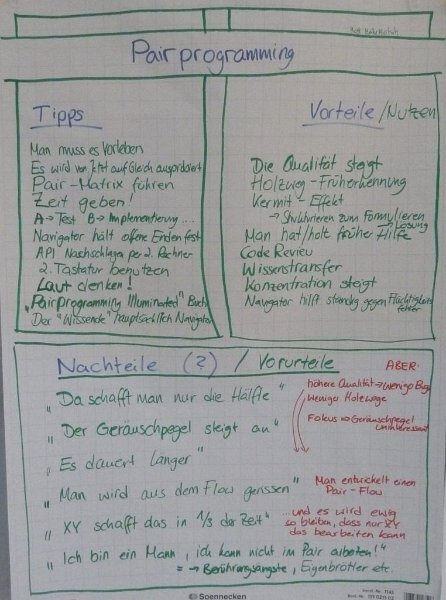 Pairprogramming
Tipps
Man muss es vorleben
Es wird von Jetzt auf Gleich ausprobiert
Pair-Matrix führen
Zeit geben!
A → Test B → Implementierung ....
Navigator hält offene Enden fest
API Nachschlagen per 2. Rechner
2. Tastatur benutzen
Laut denken!
"Pairprogramming Illuminated" Buch
Der "Wissende" hauptsächlich Navigator
Vorteile/Nutzen
Die Qualität steigt
Holzweg-Früherkennung
Kermit-Effekt
→ Strukturieren zum Formulieren
→ Lösung
Man hat/holt früher Hilfe
Code Review
Wissenstransfer
Konzentration steigt
Navigator hilft ständig gegen Flüchtigkeits
fehler
Nachteile (?) / Vorurteile
ABER:
"Da schafft man nur die Hälfte"
höhere Qualität → wenig Bugs
weniger Holzwege
"Der Geräuschpegel steigt an"
Fokus => Geräuschpegel
uninteressant
"Es dauert länger"
"Man wird aus dem Flow gerissen"
Man entwickelt einen
Pair-Flow
"XY schafft das in 1/3 der Zeit"
...und es wird ewig
so bleiben, dass nur XY
das bearbeiten kann
"Ich bin ein Mann, ich kann nicht im Pair arbeiten!"
= → Berührungsängste, Eigenbrötler etc.
Soennecken